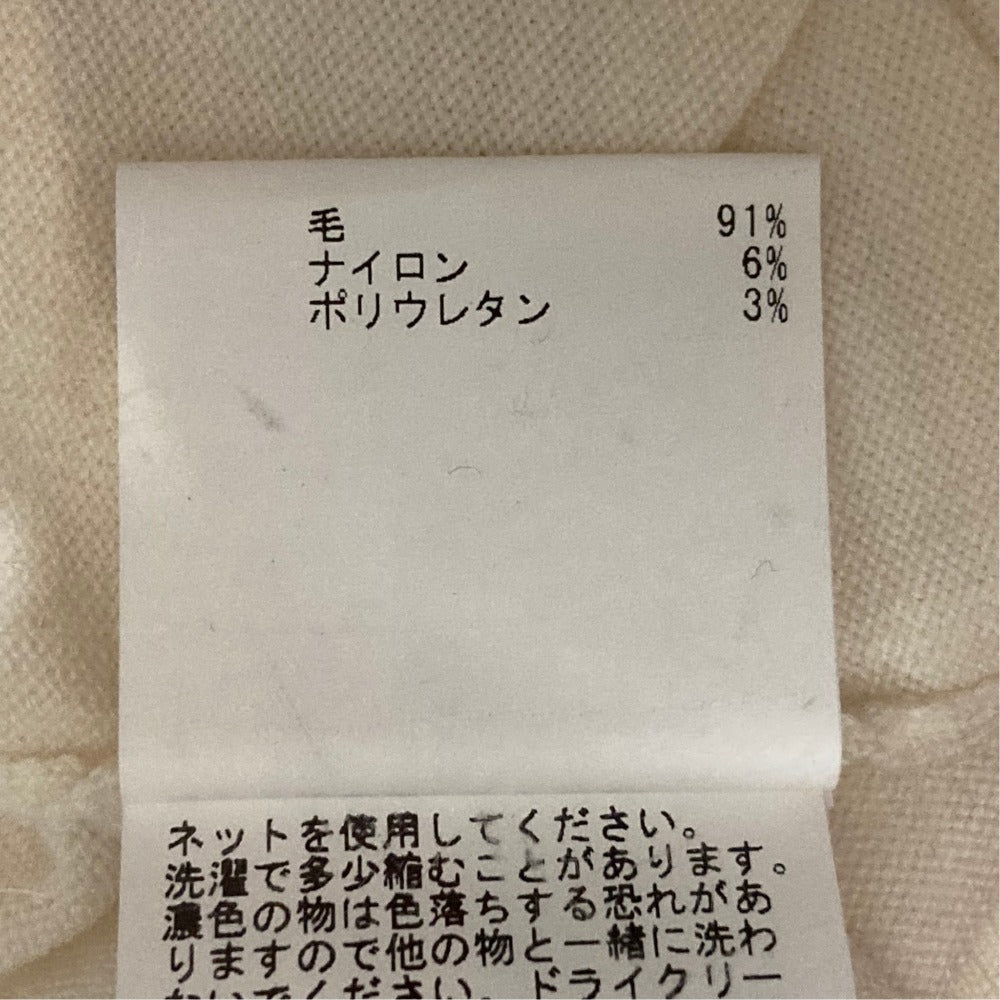 毛 91%
ナイロン 6%
ポリウレタン 3%
ネットを使用してください。
洗濯で多少縮むことがあります。
濃色の物は色落ちする恐れがあ
りますので他の物と一緒に洗わ
ないでください。ドライクリー